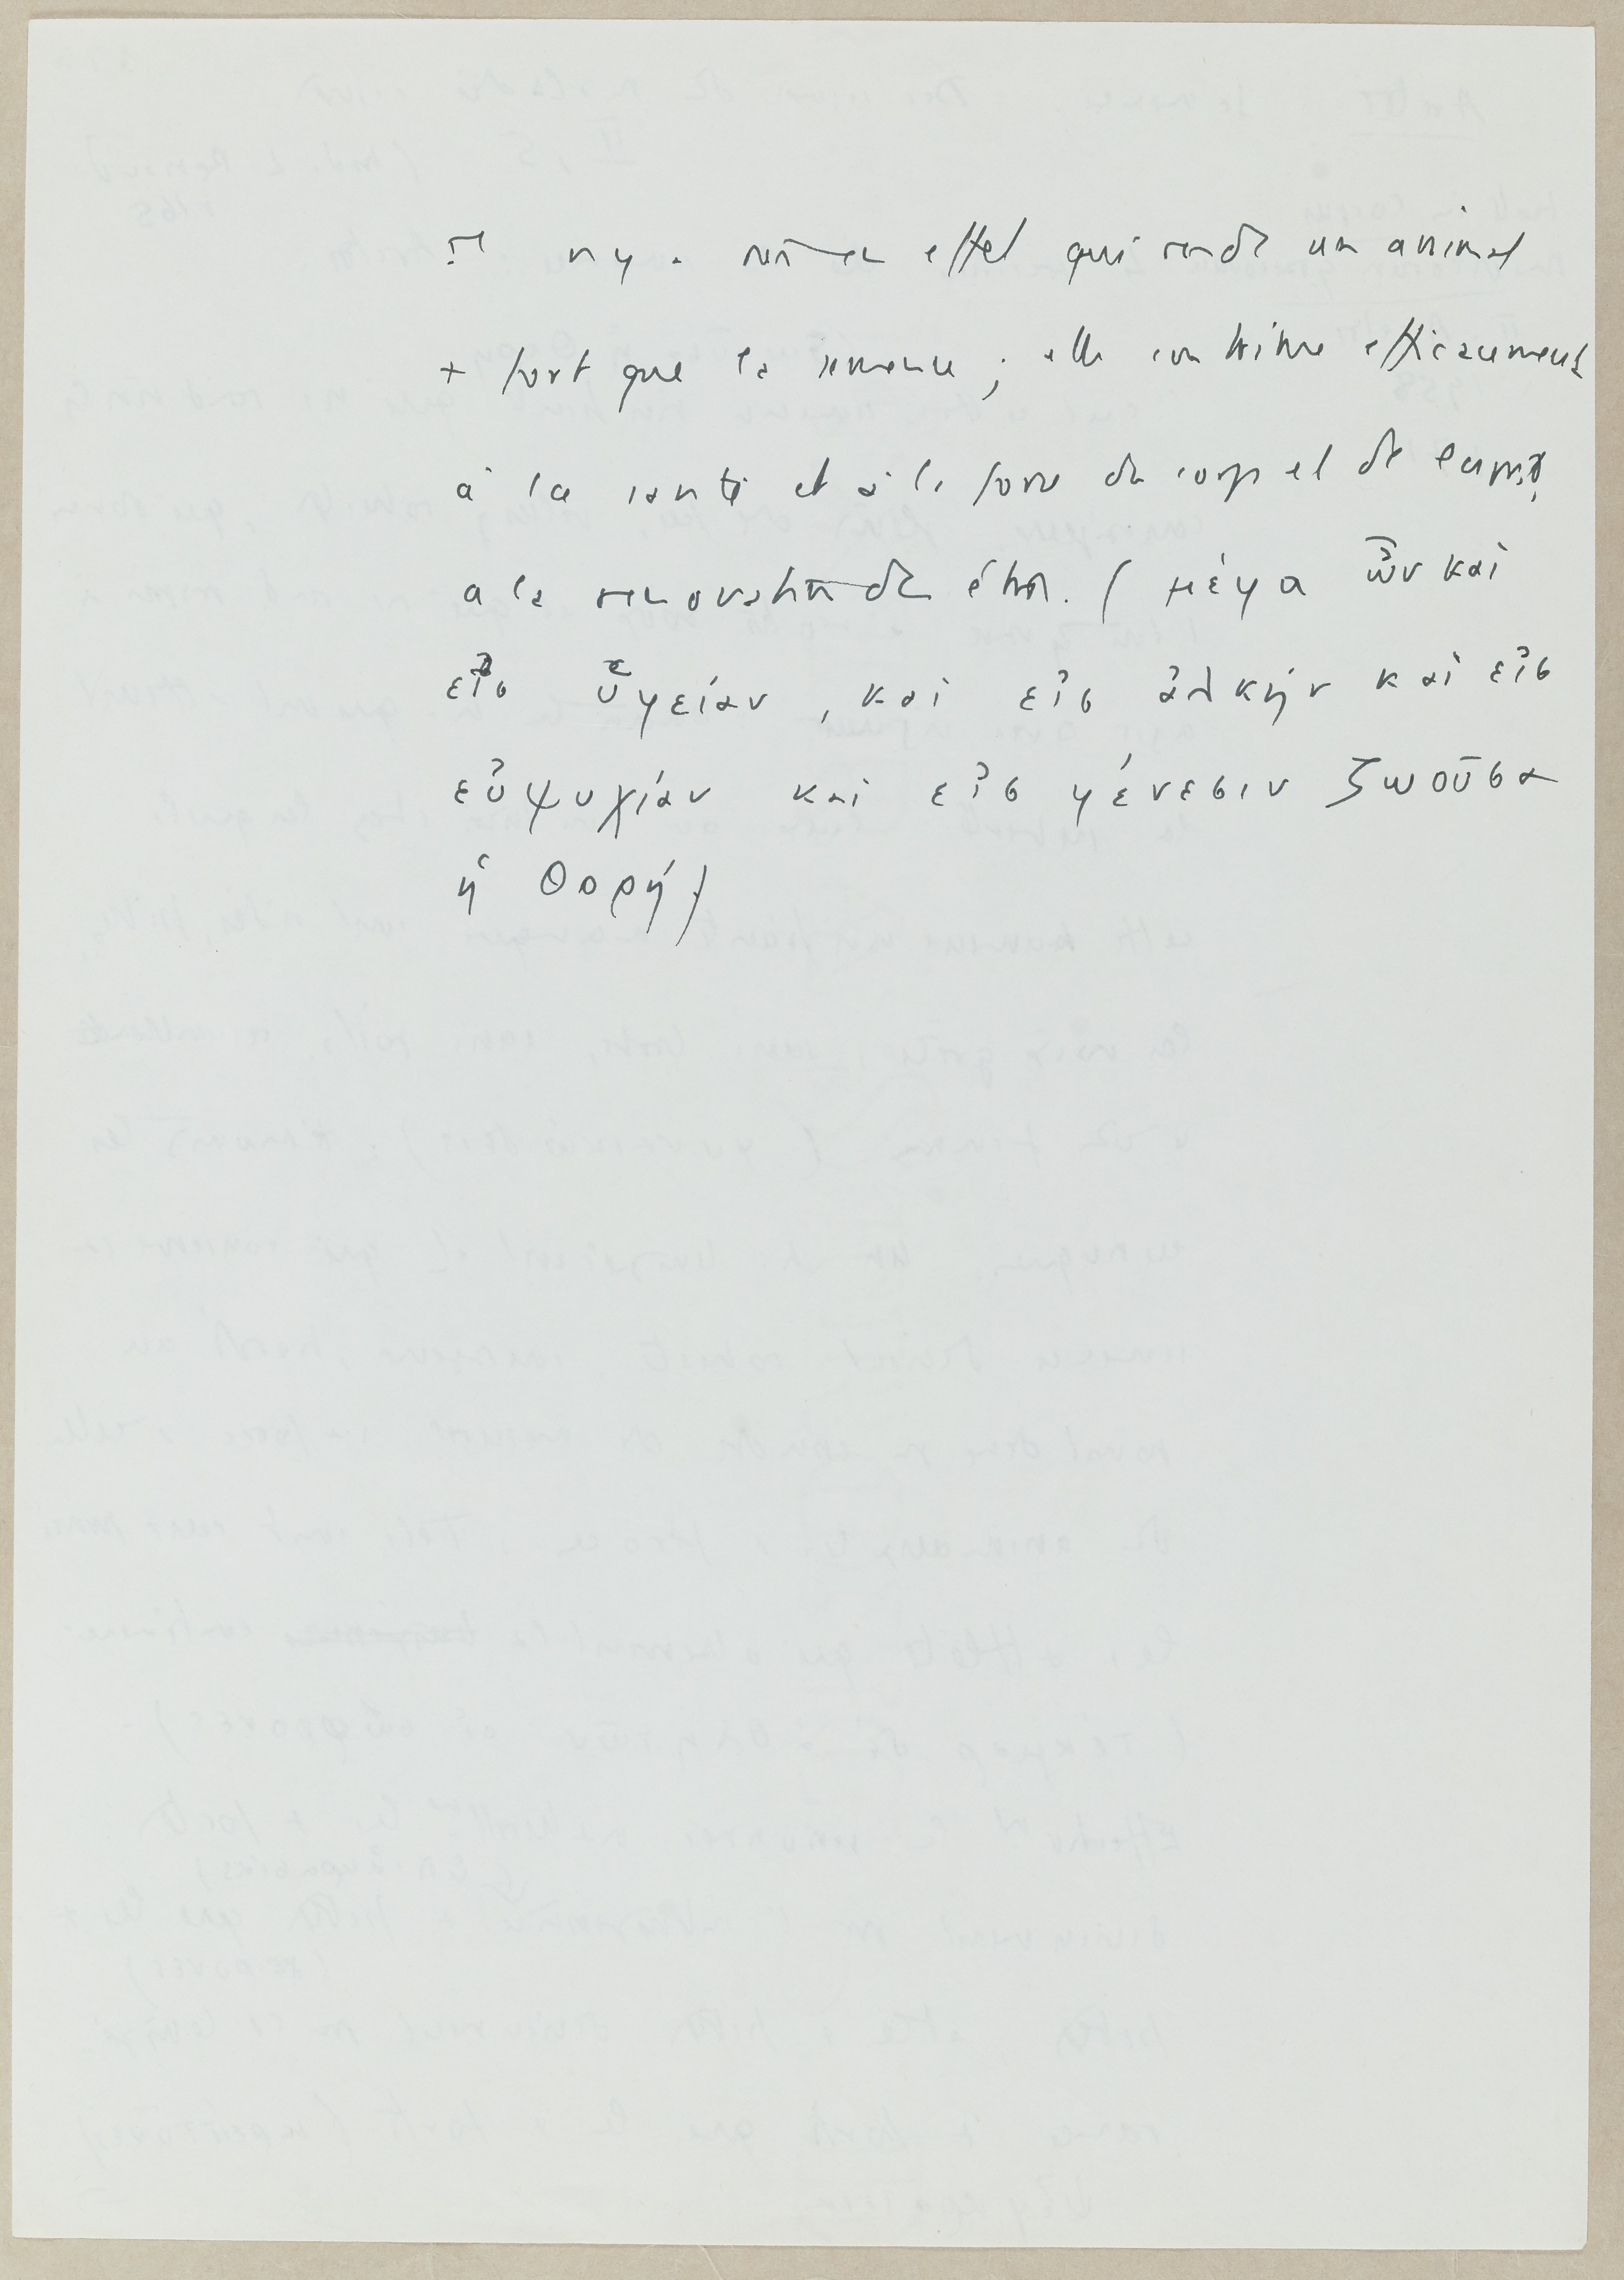 Il n'y a rien en effet qui rende un animal
+ fort que la semence ; elle contribue efficacement
à la santé et à la force du corps et de l'esprit,
a la renovation de êtres. ( μέγα ὦν καὶ
εἰσ ὑγείαν , καὶ εἰσ ἀλκήν καὶ εἰσ
εὐψυχίαν και εἰσ γένεσιν ζωοῦσα
ἡ θορή)